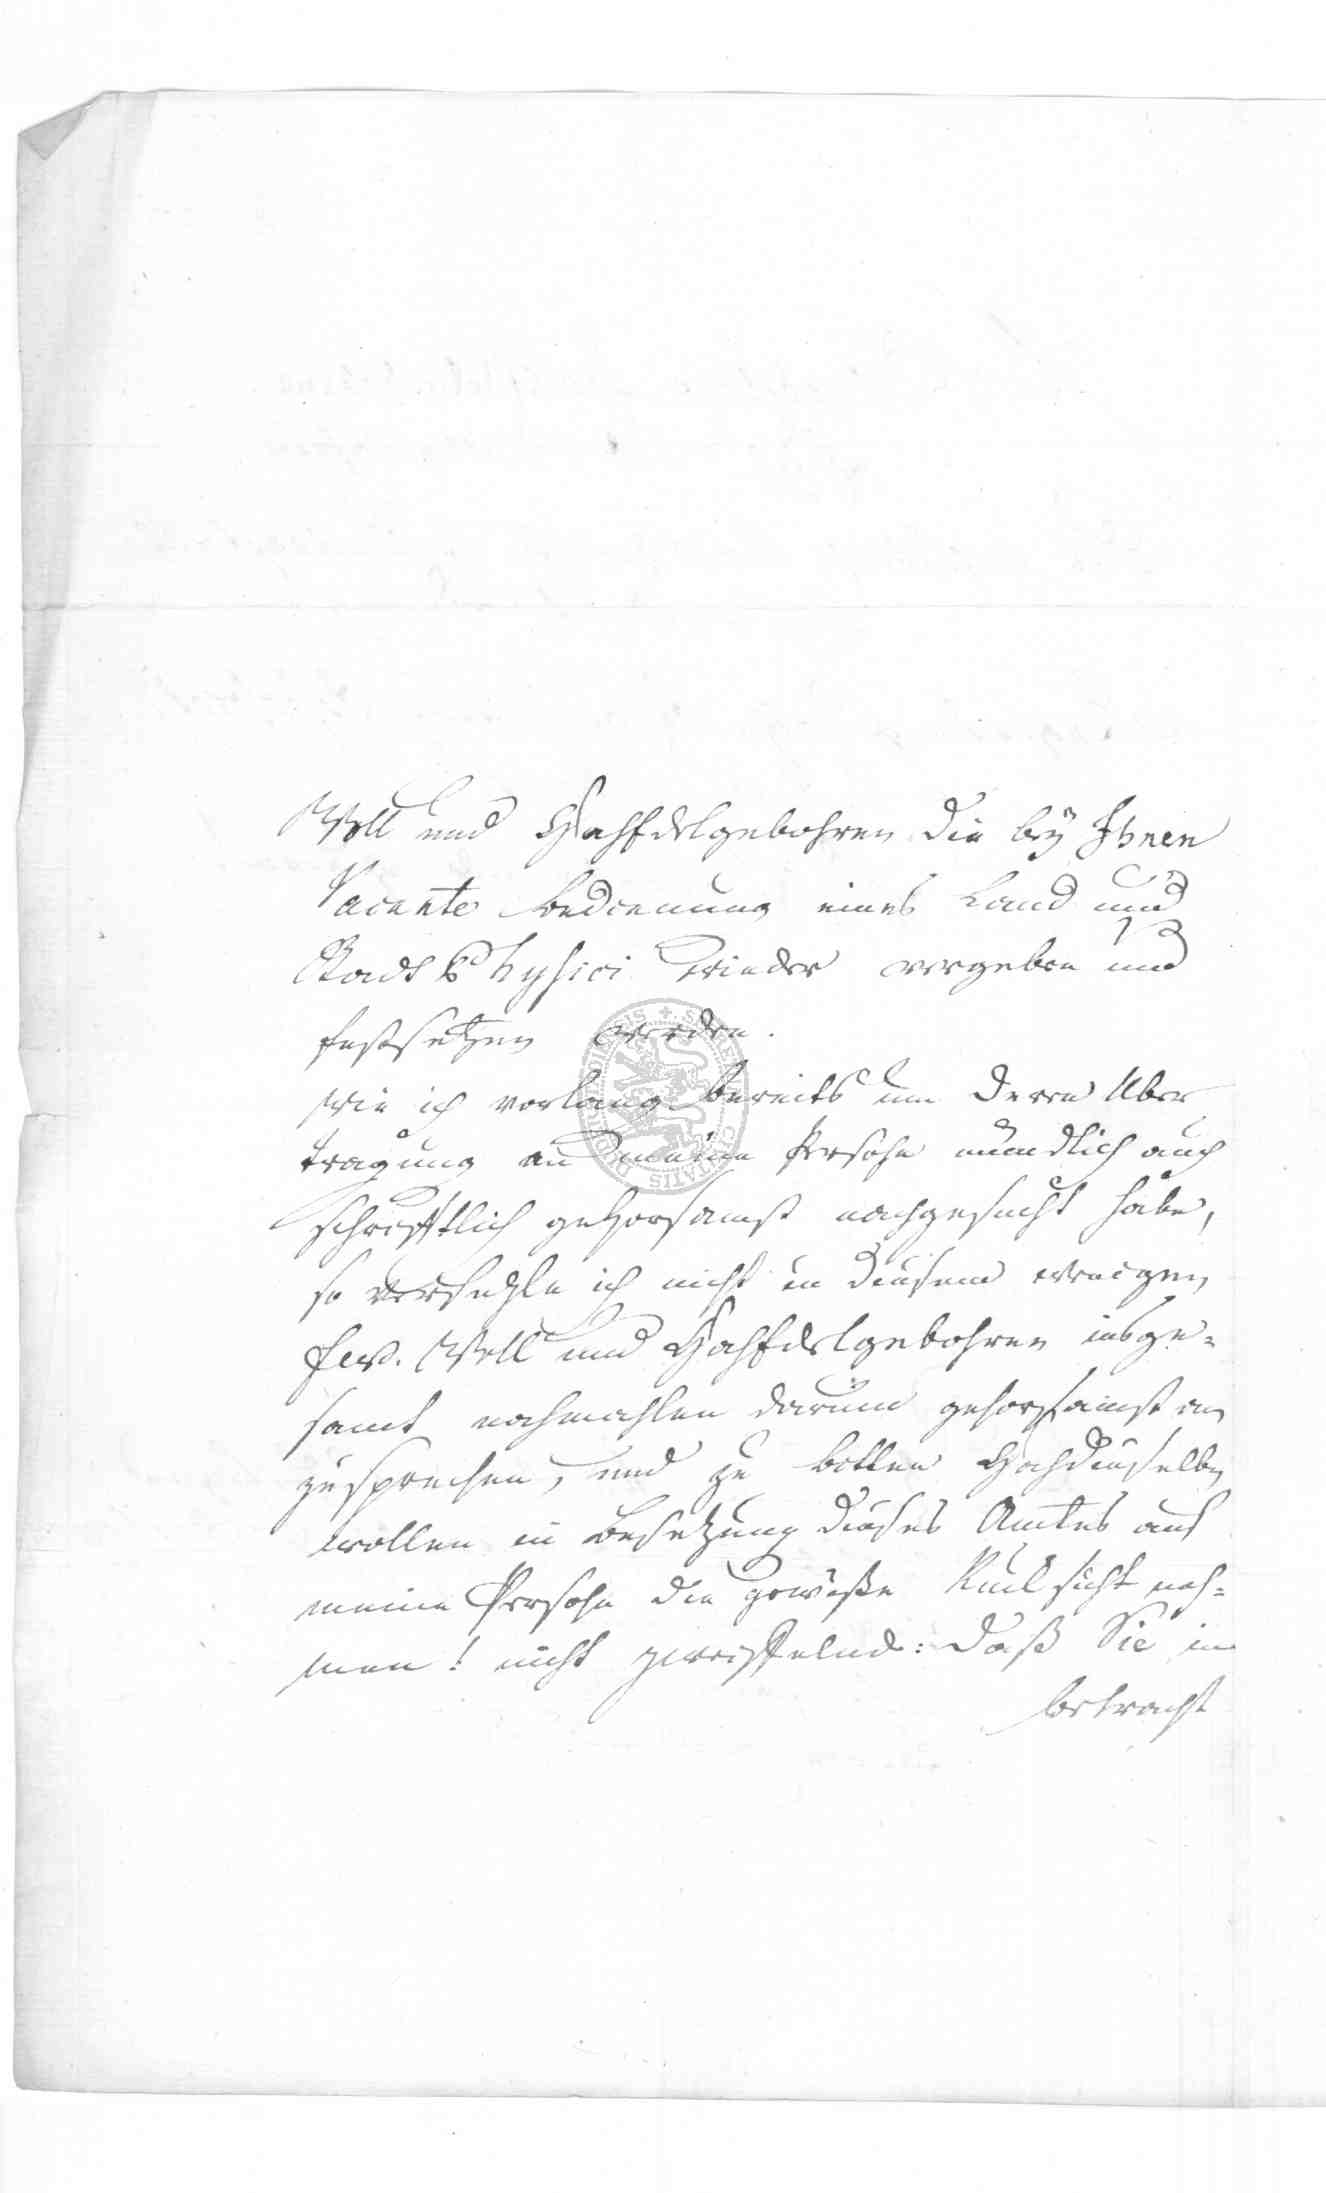 Woll und Hochedelgebohren die bey Ihnen
Vacente bedienung eines Land und
Stadt Physici wieder vergeben und
festsetzen werden.
wie ich vorlängst bereits um deren Uber
tragung an meine Persohn mündlich auch
schrifftlich gehorsamst nachgesucht habe,
so verfehle ich nicht in diesem
Ew. Woll und Hochedelgebohren insge=
samt nochmahlen darum gehorsamst an
zusprechen, und zu bitten Hochdieselben
wollen in Besetzung dieses Amtes auf
meine Persohn die gewiße Rücksicht neh=
men! nicht zweifflend: daß Sie in
betracht
DUDERSTADIENSIS CIVITATIS